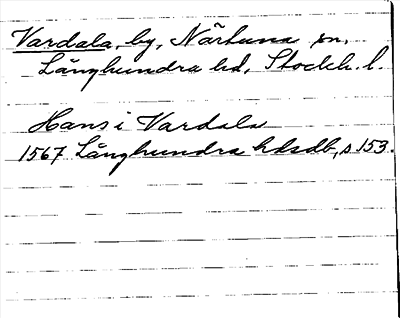 Vardala, by, Närtuna sn,
Långhundra hd, Stockh. l.
Hans i Vardala
1567 Långhundra hdsdb, s 153.